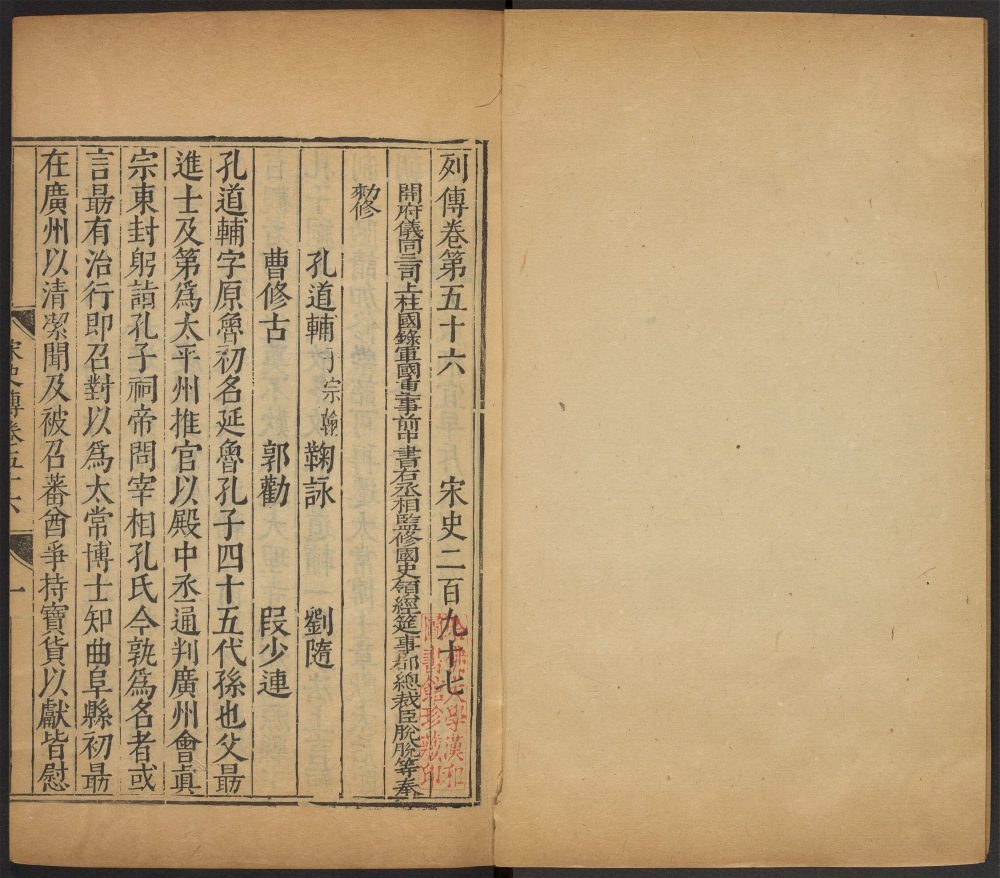 列傳卷第五十六　宋史二百九十七
開府儀同三司上柱國錄軍國重事前中書右丞相監修國史領經筵事都總裁臣脫脫等奉
勑修
孔道輔 子宗翰　鞠詠　劉隨
曹修古　郭勸　段少連
孔道輔字原魯初名延魯孔子四十五代孫也父勗
進士及第爲太平州推官以殿中丞通判廣州會眞
宗東封躬詣孔子祠帝問宰相孔氏今孰爲名者或
言勗有治行即召對以爲太常博士知曲阜縣初勗
在廣州以清潔聞及被召蕃酋爭持寶貨以獻皆慰
宋史傳卷五十六
一
哈佛大學漢和
圖書館珍藏印